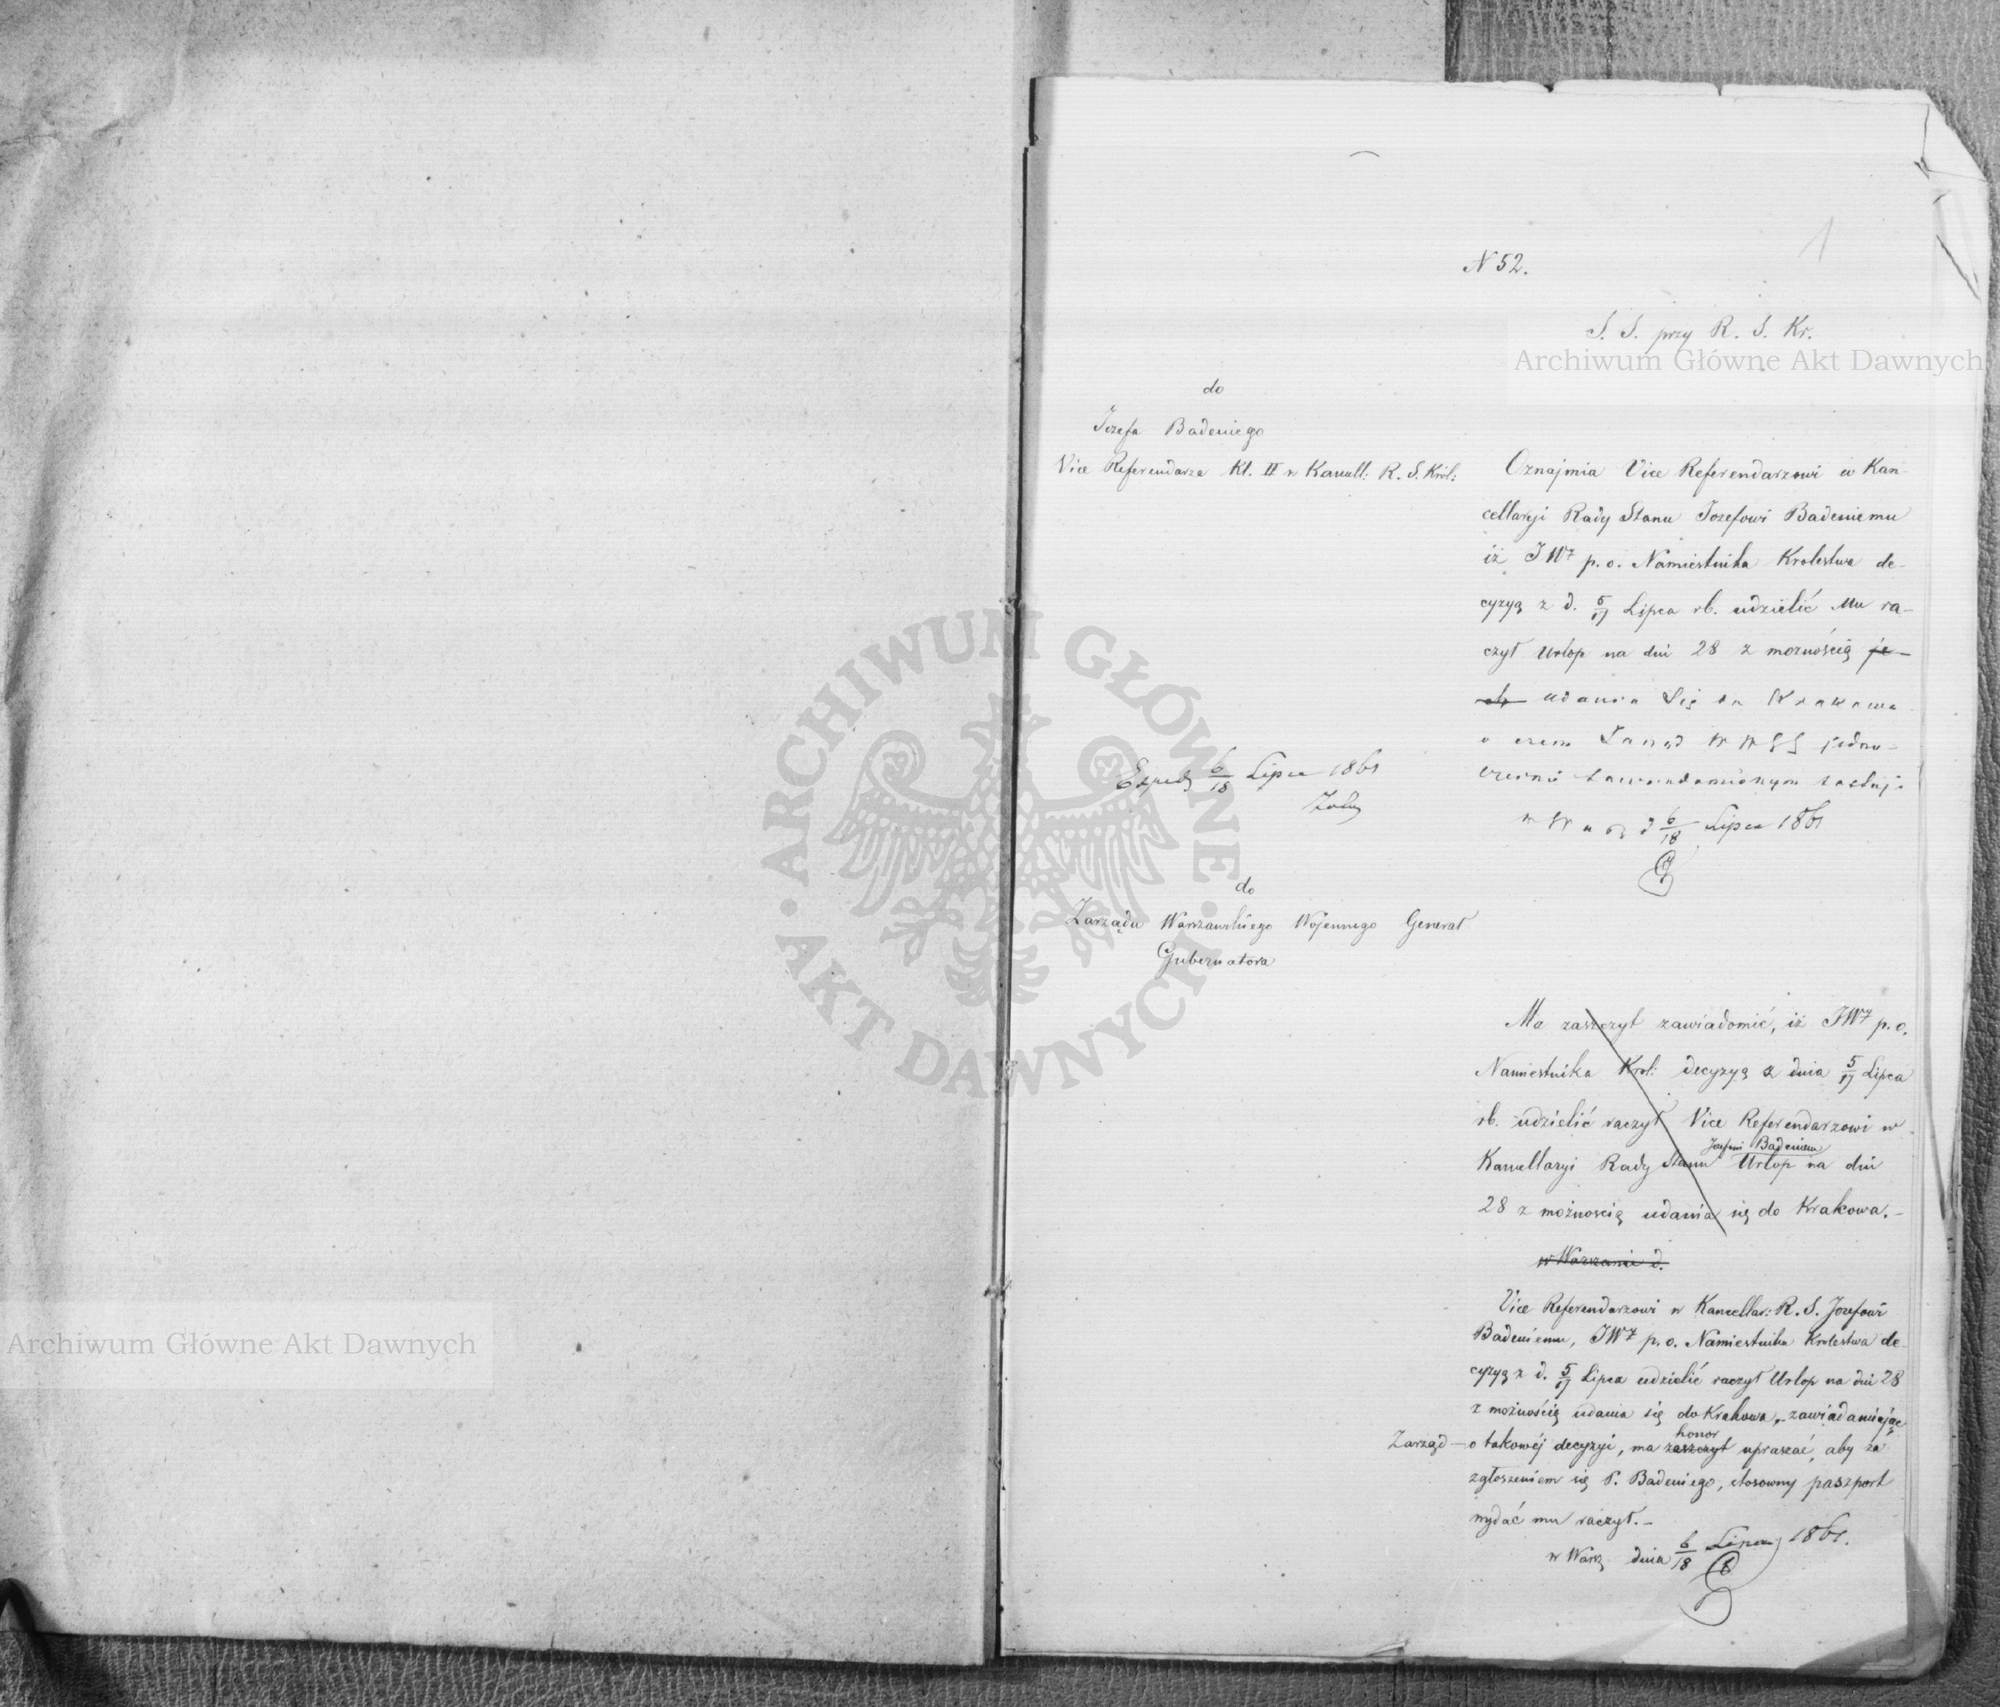 1
N 52.
S. S. przy R. S. Kr.
Archiwum Główne Akt Dawnych
do
Jozefa Badeniego
Vice Referendarza Kl. II w Kancell: R. S. Król:
Oznajmia Vice Referendarzowi w Kan-
cellaryi Rady Stanu Jozefowi Badeniemu
iż JW p. o. Namiestnika Krolestwa de-
cyzyą z d. 5/17 Lipca rb. udzielić Mu ra-
czył Urlop na dni 28 z możnością
udania się do Krakowa
o czem Zarząd jedno-
cześnie zawiadomionym zostaje
w d 6/18 Lipca 1861
Exped 6/18 Lipca 1861
do
Zarządu Warszawskiego Wojennego Generał
Gubernatora
Ma zaszczyt zawiadomić, iż JW p. o.
Namiestnika Krol: decyzyą z dnia 5/17 Lipca
rb. udzielić raczył Vice Referendarzowi w
Jozefowi Badeniemu
Kancellaryi Rady Stanu Urlop na dni
28 z możnoscią udania się do Krakowa. -
w Warszawie d.
Vice Referendarzowi w Kancellar: R. S. Jozefowi
Badeniemu, JW p. o. Namiestnika Krolestwa de-
cyzyą z d. 5/17 Lipca udzielić raczył Urlop na dni 28
z możnością udania się do Krakowa, - zawiadamiając
honor
Zarząd - o takowéj decyzyi, ma zaszczyt upraszać, aby za
zgłoszeniem się P. Badeniego, stosowny paszport
wydać mu raczył. -
w Warsz dnia 6/18 Lipca 1861.
ARCHIWUM GŁÓWNE AKT DAWNYCH
Archiwum Główne Akt Dawnych